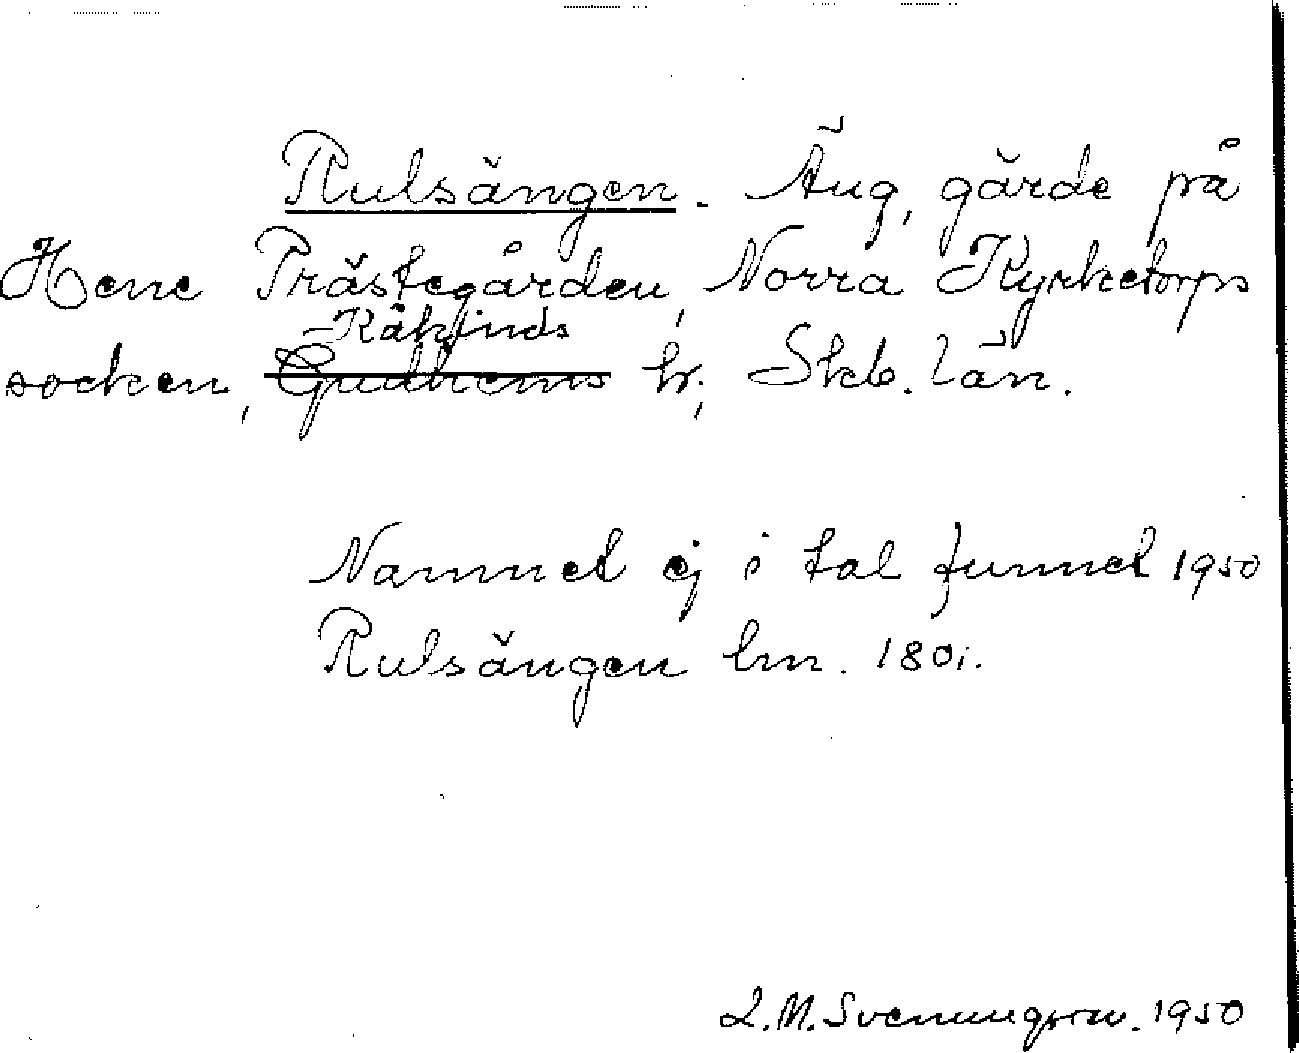 Rulsängen. Äng, gärde på
Hene Prästegården, Norra Kyrketorps
Kåkinds
socken, Gudhems hr, Skb. län.
Namnet ej i tal funnet 1950
Rulsängen lm. 1801.
L.M. Svenungsson. 1950